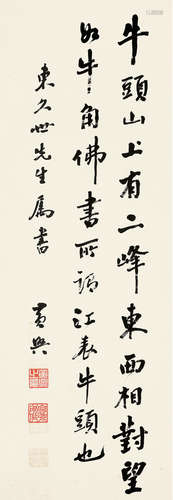 牛頭山上有二峰東西相對望
如牛々角佛書所謂江表牛頭也
東久世先生屬書
黃興